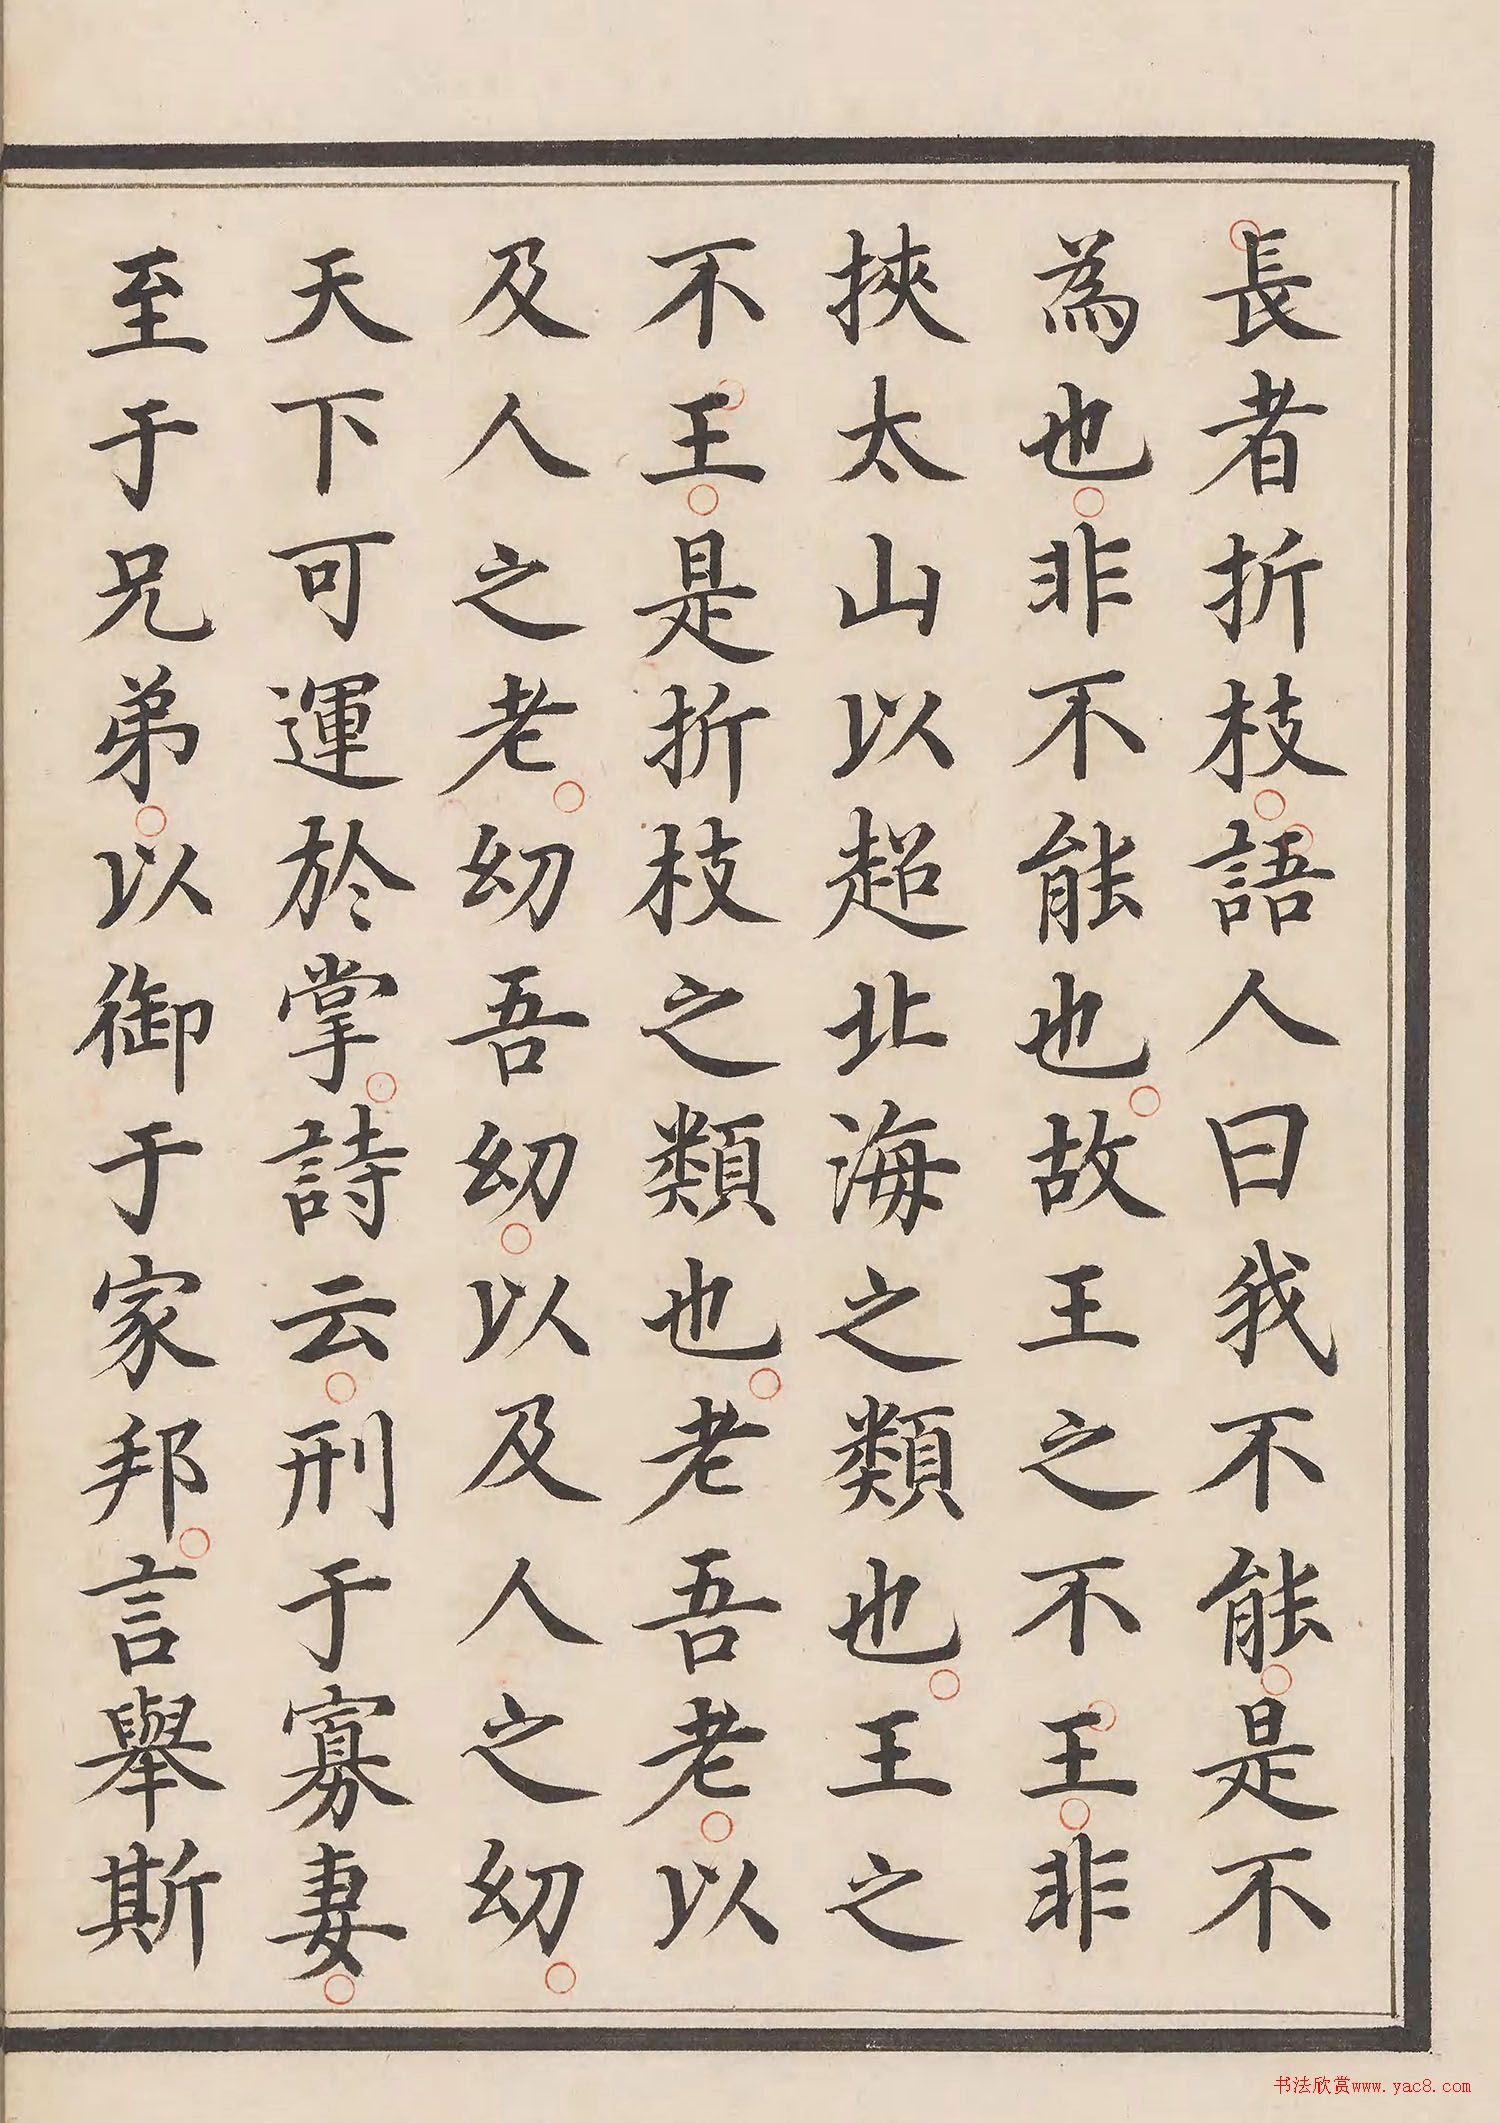 長者折枝語人曰我不能是不
為也非不能也故王之不王非
挾太山以超北海之類也王之
不王是折枝之類也老吾老以
及人之老幼吾幼以及人之幼
天下可運於掌詩云刑于寡妻
至于兄弟以御于家邦言舉斯
书法欣赏www.yac8.com